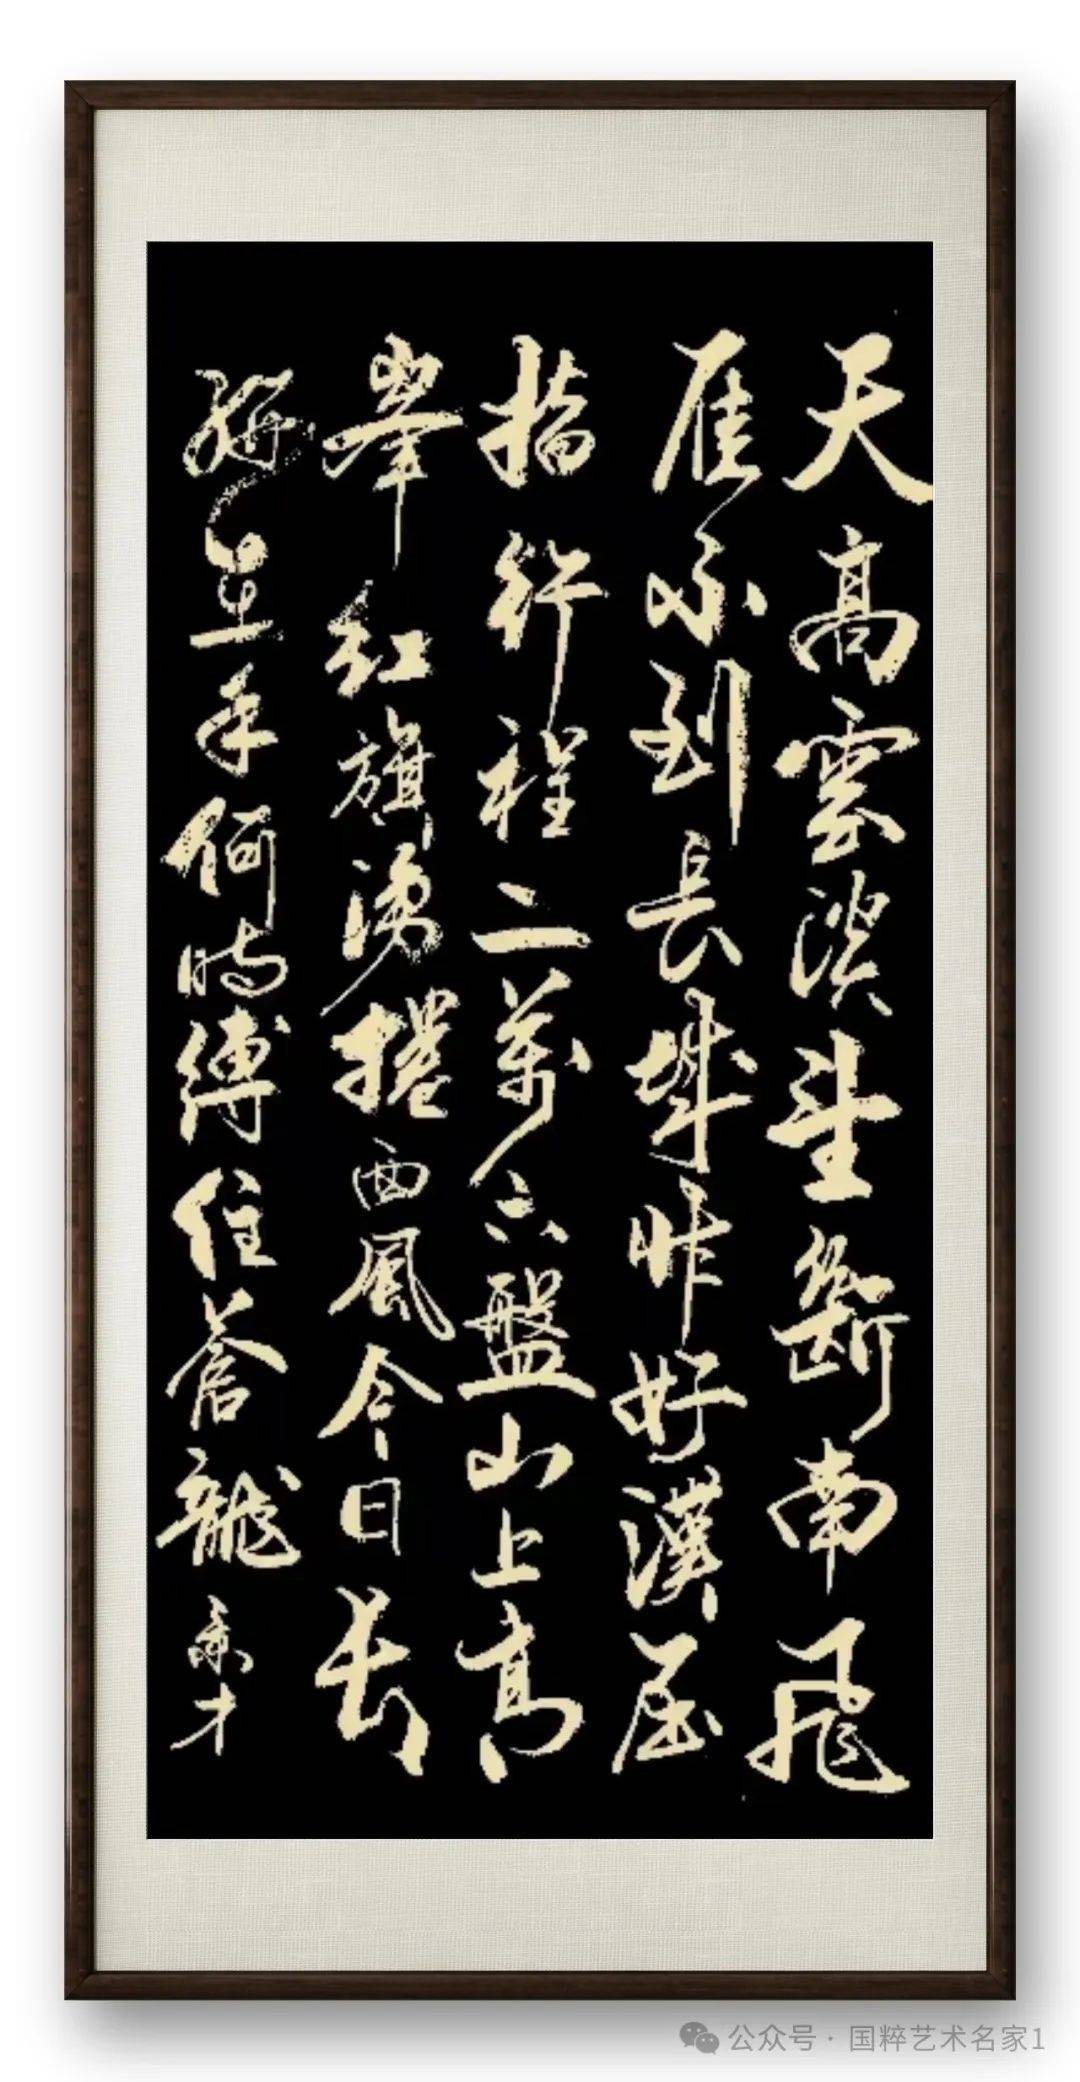 天高雲淡望斷南飛
雁不到長城非好漢屈
指行程二萬六盤山上高
峯紅旗漫捲西風今日長
纓在手何時縛住蒼龍 才
公众号 · 国粹艺术名家1